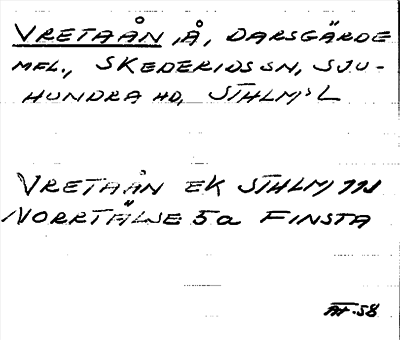 VRETAÅN, Å, DARSGÄRDE
MFL., SKEDERIDS SN, SJU-
HUNDRA HD, STHLM:S L
VRETAÅN EK STHLM 111
NORRTÄLJE 5a FINSTA
AH-58